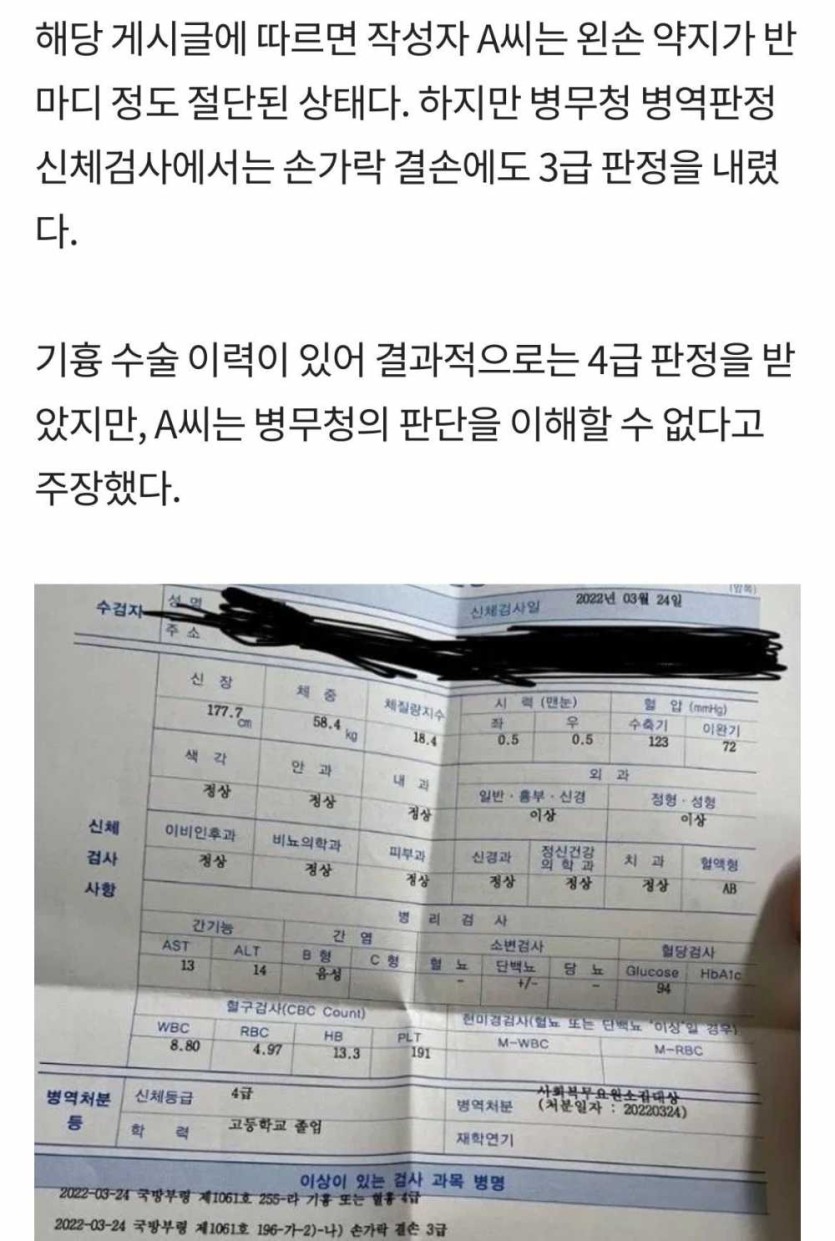 해당 게시글에 따르면 작성자 A씨는 왼손 약지가 반
마디 정도 절단된 상태다. 하지만 병무청 병역판정
신체검사에서는 손가락 결손에도 3급 판정을 내렸
다.
기흉 수술 이력이 있어 결과적으로는 4급 판정을 받
았지만, A씨는 병무청의 판단을 이해할 수 없다고
주장했다.
수검자
성 명
주 소
신체검사일
2022년 03월 24일
신체
검사
사항
신 장
체 중
체질량지수
시 력 (맨눈)
혈 압 (mmHg)
좌
우
수축기
이완기
177.7 cm
58.4 kg
18.4
0.5
0.5
123
72
색 각
안 과
내 과
외 과
정상
정상
정상
일반·흉부·신경
정형·성형
이상
이상
이비인후과
비뇨의학과
피부과
신경과
정신건강
의 학 과
치 과
혈액형
정상
정상
정상
정상
정상
정상
AB
병 리 검 사
간기능
간 염
소변검사
혈당검사
AST
ALT
B 형
C 형
혈 뇨
단백뇨
당 뇨
Glucose
HbA1c
13
14
음성
-
+/-
-
94
혈구검사(CBC Count)
현미경검사(혈뇨 또는 단백뇨 '이상'일 경우)
WBC
RBC
HB
PLT
M-WBC
M-RBC
8.80
4.97
13.3
191
병역처분
등
신체등급
4급
병역처분
사회복무요원소집대상
(처분일자 : 20220324)
학 력
고등학교 졸업
재학연기
이상이 있는 검사 과목 병명
2022-03-24 국방부령 제1061호 255-라 기흉 또는 혈흉 4급
2022-03-24 국방부령 제1061호 196-가-2)-나) 손가락 결손 3급